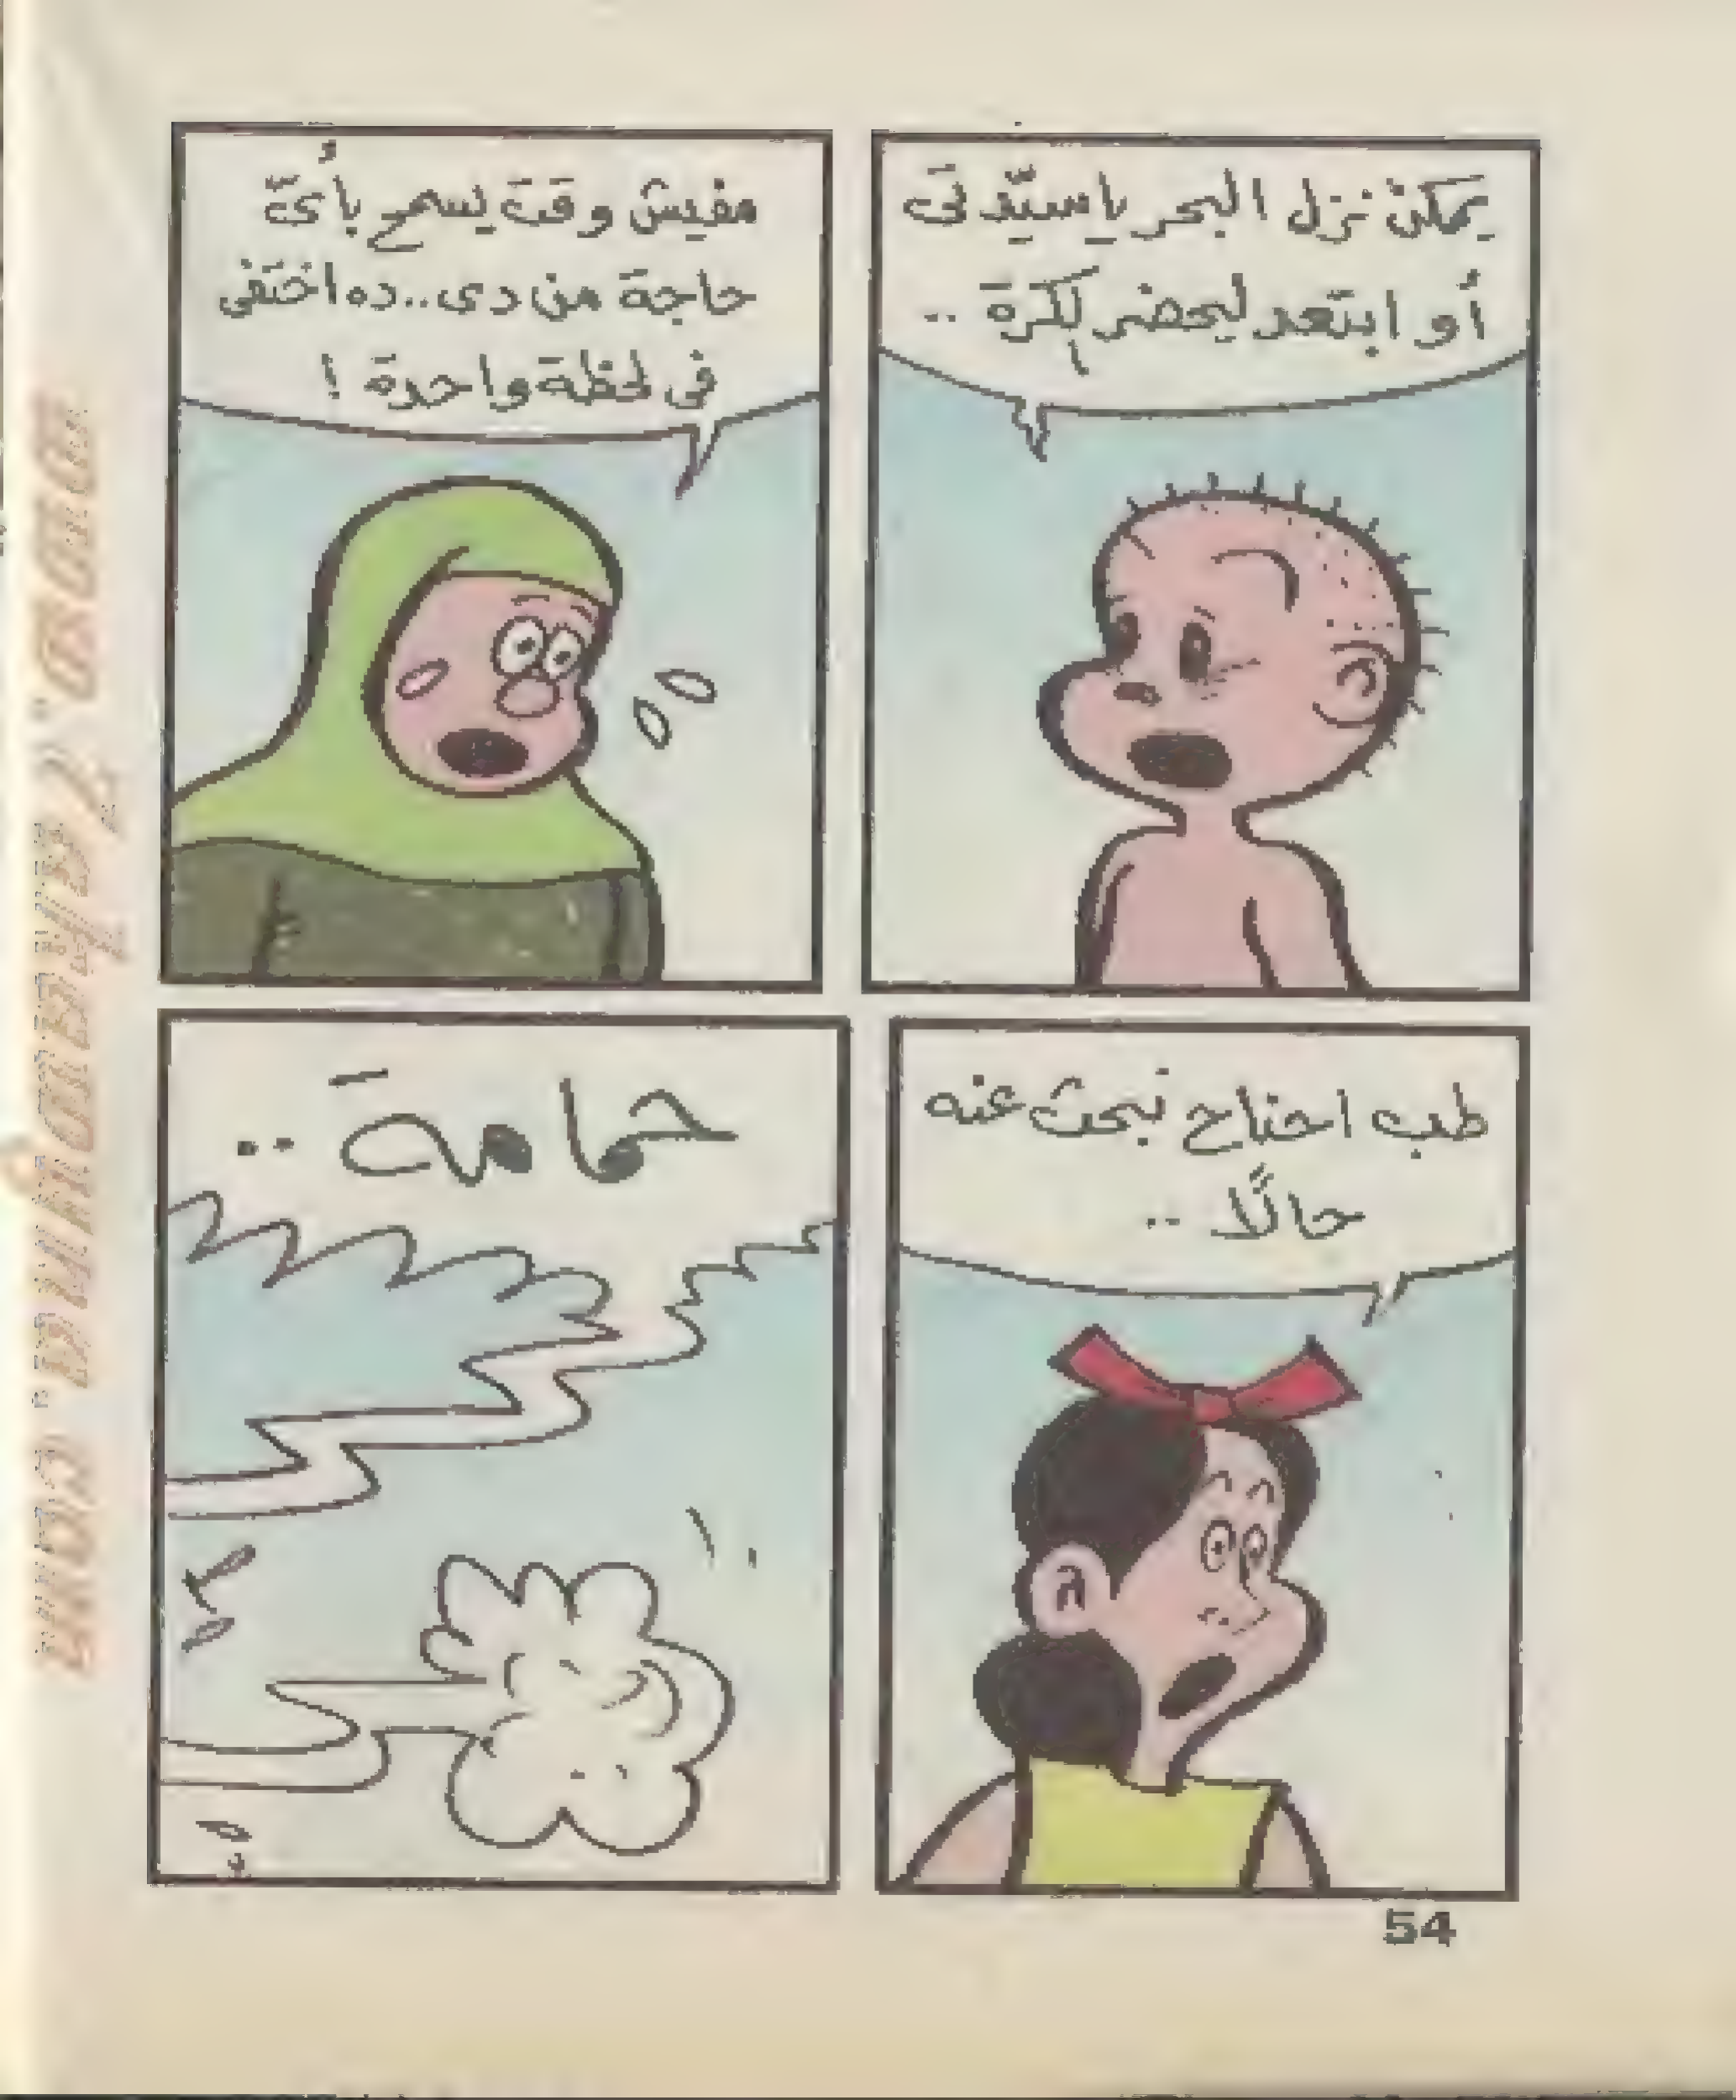 يمكن نزل البحر يا سيّدتى
أو ابتعد ليحضر لكرة ..
مفيش وقت يسمح بأىّ
حاجة من دى .. ده اختفى
فى لحظة واحدة !
طب احناح نبحث عنه
حالًا ..
حمامة ..
54